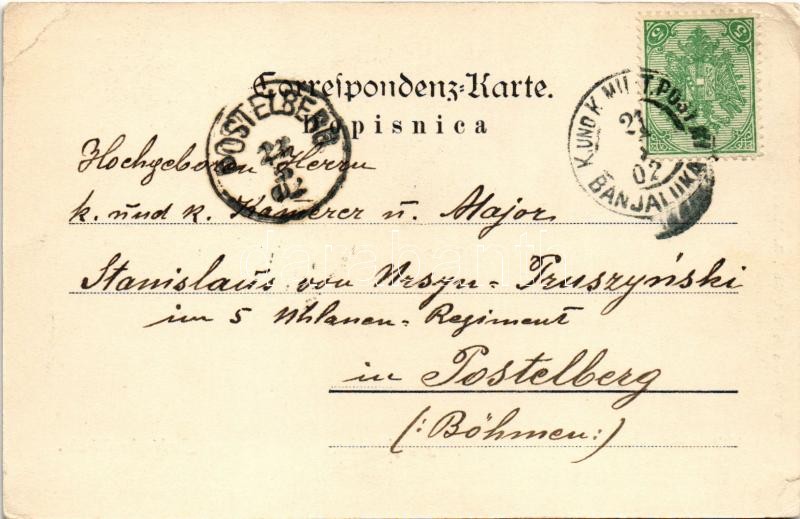 Correspondenz-Karte.
Dopisnica
POSTELBERG
K. UND K. MILIT. POST
BANJALUKA
02
5 5
Hochgeboren Herrn
k. und k. Kämerer u. Major
Stanislaus von Ursyn-Pruszyński
im 5 Uhlanen-Regiment
in Postelberg
(:Böhmen:)